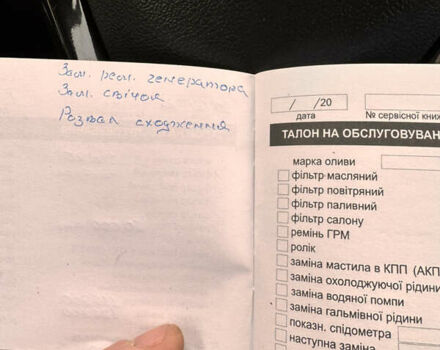 Зам. рем. генератора
Зам. свічок
Розвал сходження
/ /20
дата
№ сервісної книж
ТАЛОН НА ОБСЛУГОВУВАН
марка оливи
фільтр масляний
фільтр повітряний
фільтр паливний
фільтр салону
ремінь ГРМ
ролік
заміна мастила в КПП (АКП
заміна охолоджуючої рідини
заміна водяної помпи
заміна гальмівної рідини
показн. спідометра
наступна заміна